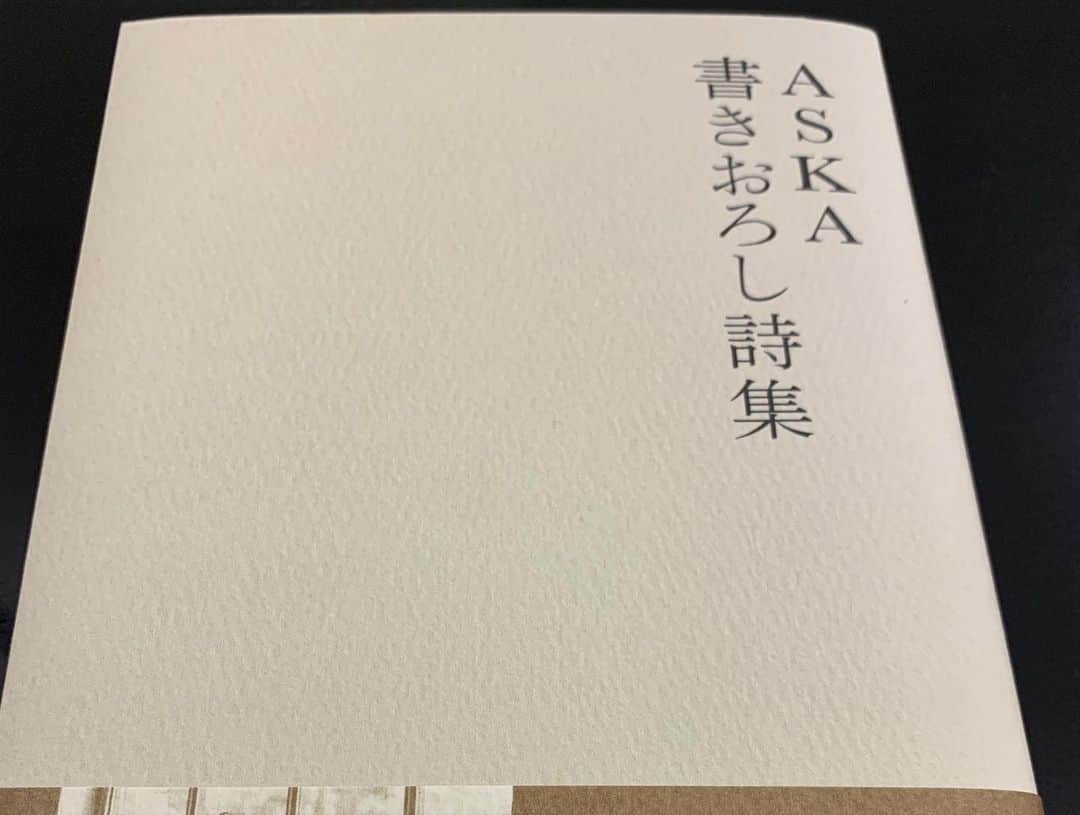 ASKA
書きおろし詩集